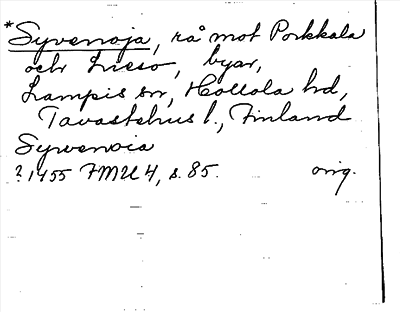 *Syvenoja, rå mot Porkkala
och Lieso, byar,
Lampis sn, Hollola hd,
Tavastehus l., Finland
Syvenoia
? 1455 FMU 4, s. 85. orig.